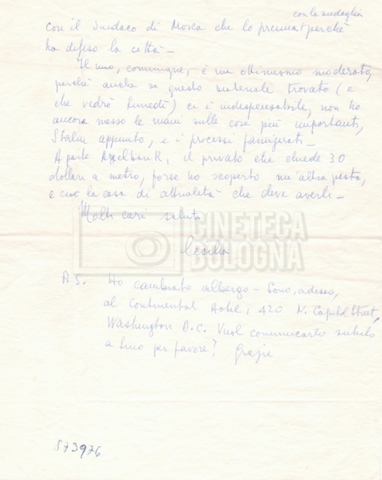 con la medaglia
con il Sindaco di Mosca che lo premia perché
ha difeso la città –
Il mio, comunque, è un ottimismo moderato,
perché anche se questo materiale trovato (e
che vedrò lunedì) ci è indispensabile, non ho
ancora messo le mani sulle cose più importanti,
Stalin appunto, e i processi famigerati –
A parte Axelbank, il privato che chiede 30
dollari a metro, forse ho scoperto un'altra pista,
e cioè la casa di attualità che deve averli –
Molti cari saluti
Cecilia
P.S. Ho cambiato albergo – Sono, adesso,
al Continental Hotel, 420 N. Capitol Street,
Washington D.C. Vuol comunicarlo subito
a Lino per favore? Grazie
CINETECA
BOLOGNA
573976